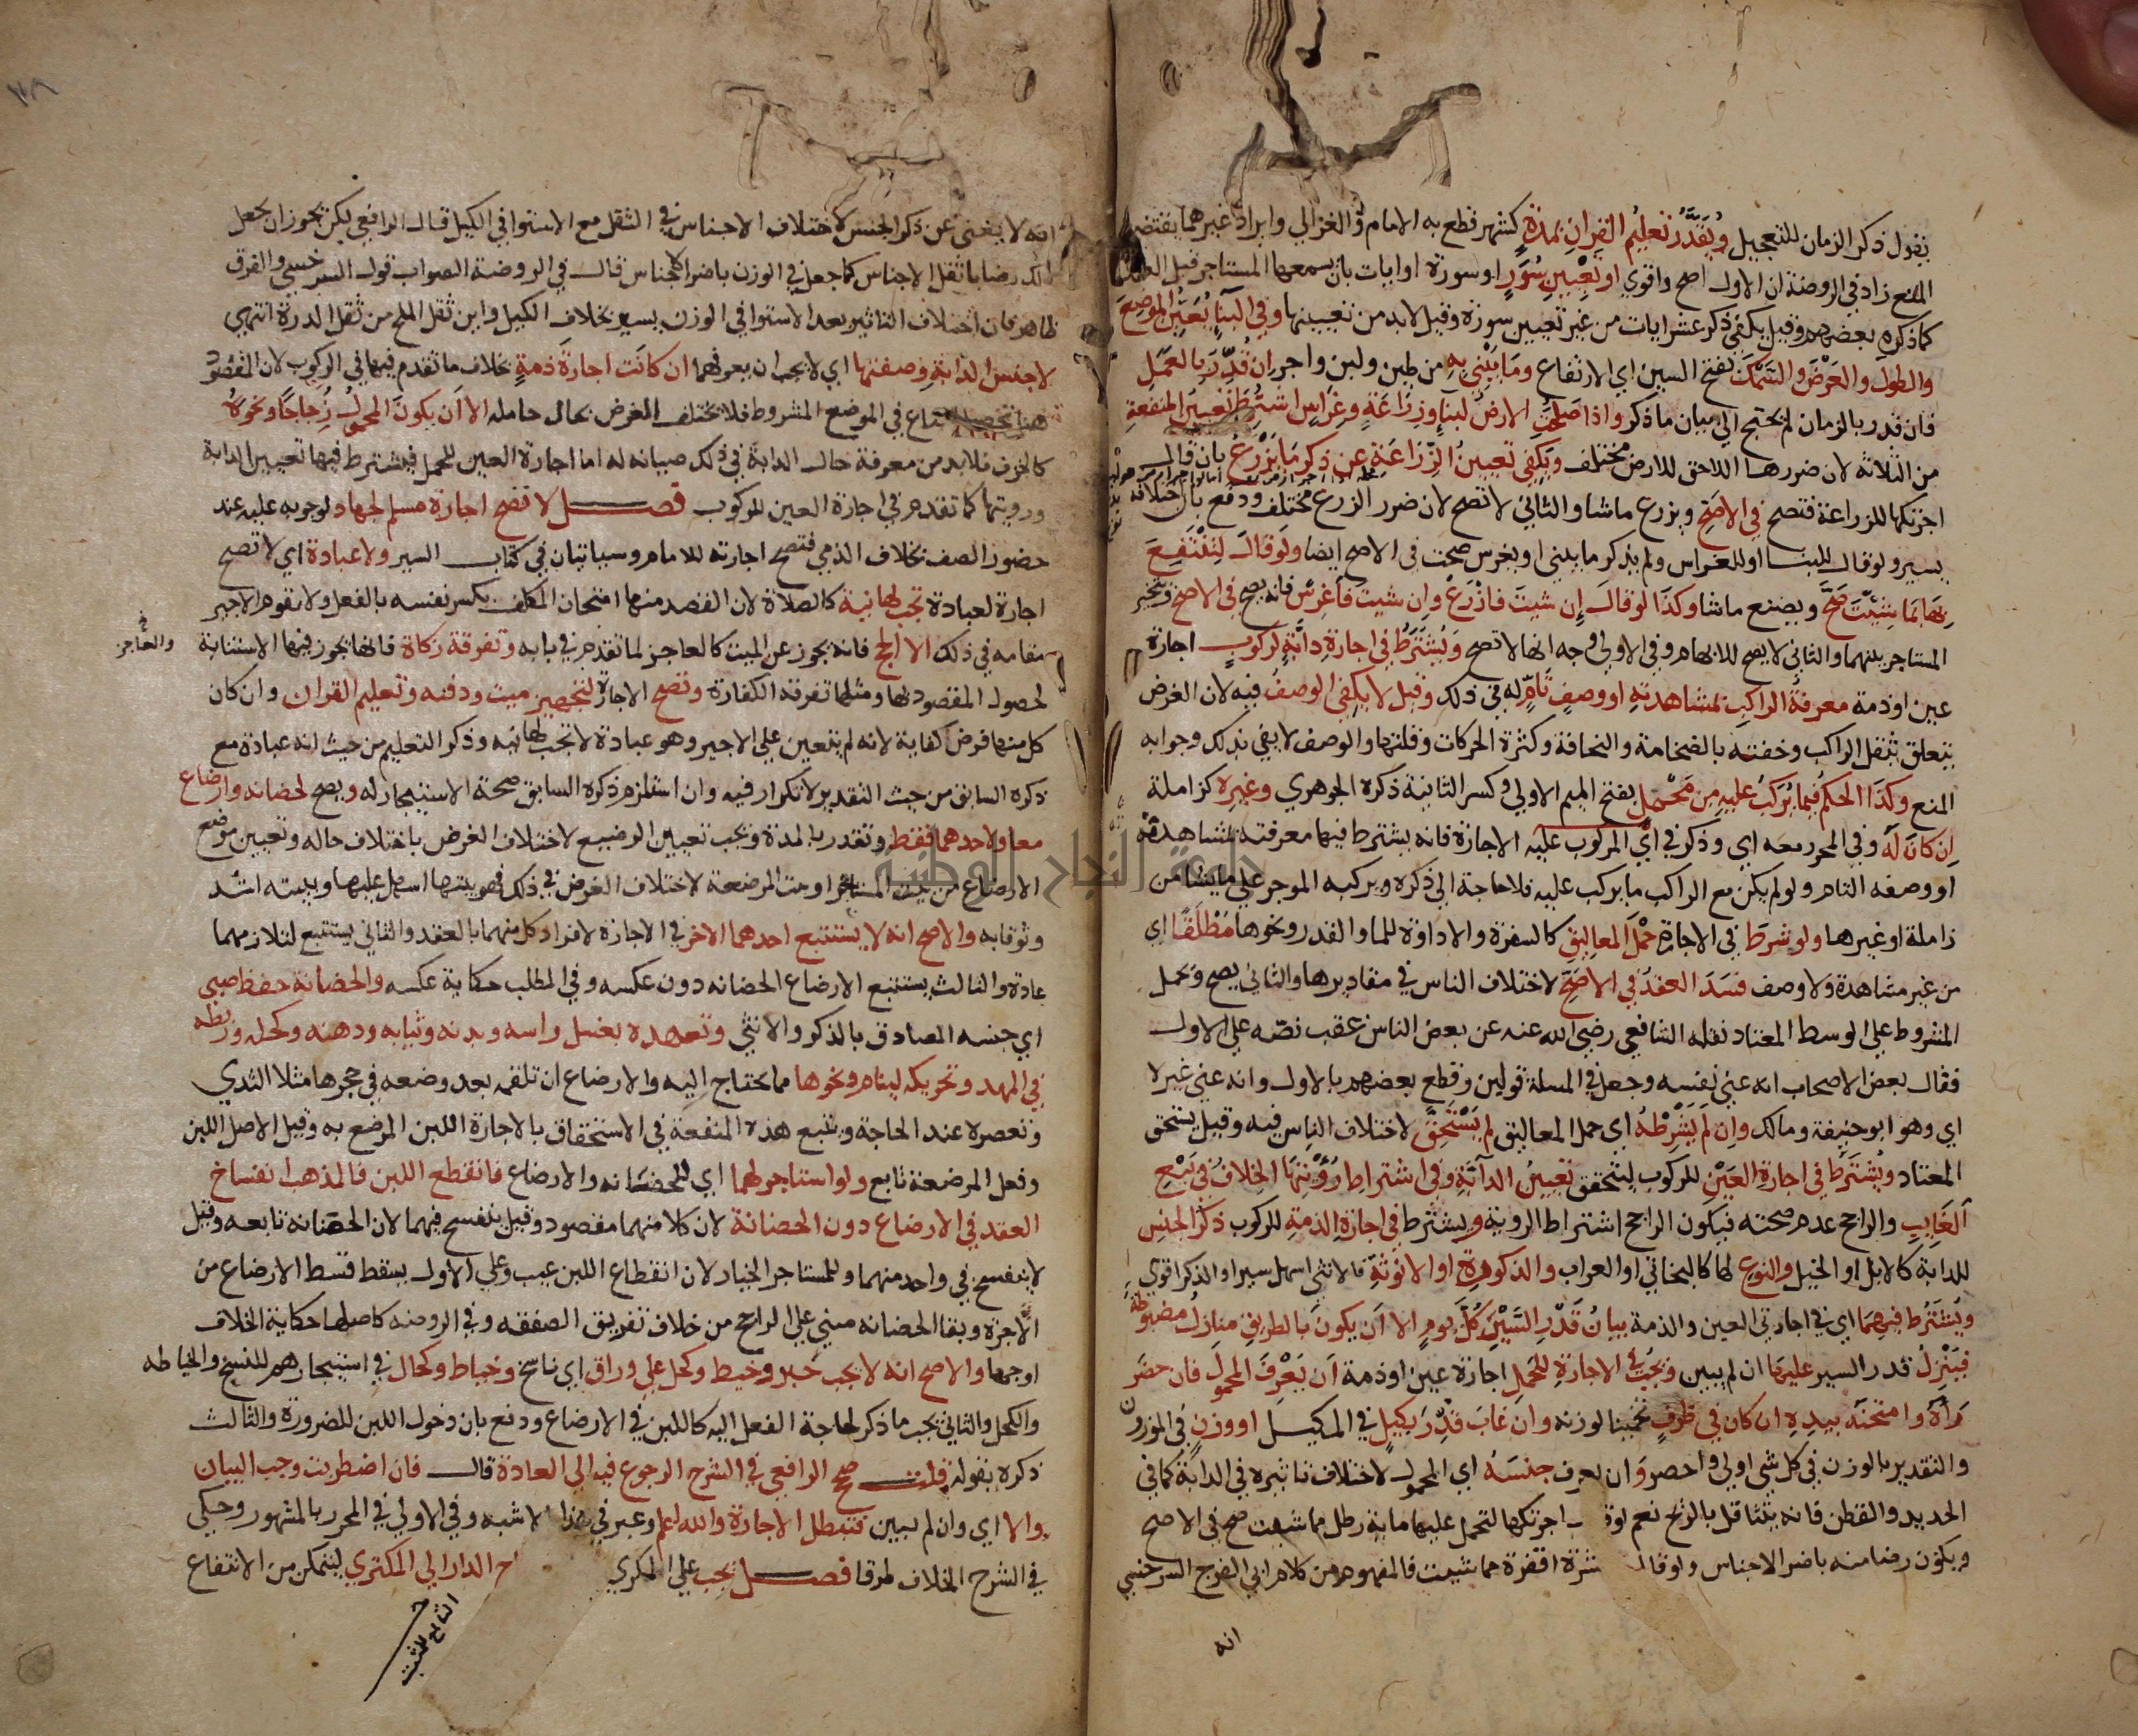 يقول ذكر الزمان للتعجيل ويُقَدَّر تعليمُ القرانِ بمدةٍ كشهر قطع به الامام والغزالي وايراد غيرهما يقتضي
المنع زاد في الروضة ان الاول اصح واقوي او تعيينِ سُوَرٍ او سورة او ايات بان يسمعها المستاجر قبل
كما ذكره بعضهم وقيل يكفي ذكر عشر ايات من غير تعيين سورة وقيل لابد من تعيينها وفي البنآءِ يُعَيِّنُ الموضِعَ
والطولَ والعَرْضَ والسَّمْكَ بفتح السين اي الارتفاع ومَا يَبْنِي بهِ من طين ولبن واجر ان قُدِّرَ بالعملِ
فان قدر بالزمان لم يحتج الي بيان ما ذكر واذا صَلحَت الارضُ لبنآءٍ وزِرَاعَةٍ وغِراسٍ اشتُرِطَ تَعيينُ المنفعةِ
من الثلاثة لان ضررها اللاحق للارض مختلف ويَكفِي تعيينُ الزِّرَاعَةِ عن ذِكرِ مَا يَزْرَعُ بان قال
اجرتكها للزراعة فتصح في الاصَحّ ويزرع ماشا والثاني لا تصح لان ضرر الزرع مختلف ودفع بان اختلافه
يسير ولو قال للبنا او للغراس ولم يذكر ما يبني او يغرس صحت في الاصح ايضا ولَو قالَ لتَنْتَفِعَ
بِهَا بمَا شِيْتَ صَحَّ ويصنع ماشا وكَذَا لو قالَ إن شيتَ فازْرَعْ وان شيتَ فاغرِسْ فانه يصح في الاصح ويتخير
المستاجر بينهما والثاني لا يصح للابهام وفي الاولي وجه انها لا تصح ويُشتَرَطُ في اجارةِ دابَّةٍ لركوبٍ اجارة
عين او ذمة معرفةُ الراكبِ بمُشاهدتهِ او وصفٍ تَامٍّ له في ذلك وقيلَ لا يكفِي الوصفُ فيه لان الغرض
يتعلق بثقل الراكب وخفته بالضخامة والنحافة وكثرة الحركات وقلتها والوصف لا يفي بذلك وجوابه
المنع وكَذَا الحكمُ فيما يُركبُ عليهِ مِن مَحْمِلٍ بفتح الميم الاولي وكسر الثانية ذكره الجوهري وغيرِه كزاملة
اِن كانَ لَه وفي المحرر معه اي وذكر في اي المركوب عليه الاجارة فانه يشترط فيها معرفته بمشاهدته
او وصفه التام ولو لم يكن مع الراكب ما يركب عليه فلا حاجة الي ذكره ويركبه الموجر علي ما يشا من
زاملة او غيرها ولو شرَط في الاجارة حَمْلَ المعاليقِ كالسفرة والاداوة للما والقدر ونحوها مُطْلَقًا اي
من غير مشاهدة ولا وصف فسَدَ العقدُ في الاصَحِّ لاختلاف الناس في مقاديرها والثاني يصح ويحمل
المشروط علي الوسط المعتاد نقله الشافعي رضي الله عنه عن بعض الناس عقب نصّه علي الاول
فقال بعض الاصحاب انه عني نفسه وجعل في المسلة قولين وقطع بعضهم بالاول وانه عني غيره لا
اي وهو ابو حنيفة ومالك وان لَم يَشْرِطْهُ اي حمل المعاليق لم يَسْتَحِقَّ لاختلاف الناس فيه وقيل يستحق
المعتاد ويُشتَرَطُ في اجارةِ العَيْنِ للركوب ليتحقق تعيينُ الدآبَّةِ وفي اشتراطِ رُؤْيَتِهَا الخلافُ في بَيْعِ
الغَايِبِ والراجح عدم صحته فيكون الراجح اشتراط الروية ويشترط في اجارةِ الذمةِ للركوب ذكرُ الجنسِ
للدابة كالابل او الخيل والنوعِ لها كالبخاتي او العراب والذكورةِ او الانوثةِ فالانثي اسهل سيرا والذكر اقوي
ويُشتَرَط فيهِمَا اي في اجارتي العين والذمة بيانُ قَدْرِ السَّيْرِ كُلَّ يومٍ الا اَن يكونَ بالطريقِ منازلُ مضبوطةٌ
فيَنْزِلُ قدر السير عليها ان لم يبين ويجبُ في الاجارة للحَملِ اجارة عين او ذمة اَن يَعْرِفَ المحمولَ فان حضَرَ
رَآهُ وامتحنَه بيدِهِ ان كان في ظرفٍ تخمينا لوزنه وان غابَ قُدِّرَ بكيلٍ في المكيل او وزنٍ في الموزون
والتقدير بالوزن في كل شي اولي واحصر وَان يعرف جنسَهُ اي المحمول لاختلاف تاثيره في الدابة كما في
الحديد والقطن فانه يتثاقل بالريح نعم لو اجرتكها لتحمل عليها ماية رطل مما شيت صح في الاصح
ويكون رضا منه باضر الاجناس ولو قال عشرة اقفزة مما شيت فالمفهوم من كلام ابي الفرج السرخسي
انه
انه لا يغني عن ذكر الجنس لاختلاف الاجناس في الثقل مع الاستوا في الكيل قال الرافعي لكن يجوز ان يجعل
ذلك رضا باثقل الاجناس كما جعل في الوزن باضر الاجناس قال في الروضة الصواب قول السرخسي والفرق
ظاهر فان اختلاف التاثير بعد الاستوا في الوزن يسير بخلاف الكيل واين ثقل الملح من ثقل الذرة انتهي
لا جنسَ الدابةِ وصفتَها اي لا يجب ان يعرفهما ان كانَت اجارةَ ذمةٍ بخلاف ما تقدم فيها في الركوب لان المقصود
هنا تحصيل المتاع في الموضع المشروط فلا يختلف الغرض بحال حامله الا اَن يكونَ المحمولُ زُجاجًا ونحوهُ
كالخزف فلا بد من معرفة حال الدابة في ذلك صيانة له اما اجارة العين للحمل فيشترط فيها تعيين الدابة
ورويتها كما تقدم في اجارة العين للركوب فصل لا تصح اجارة مسلم لجهاد لوجوبه عليه عند
حضور الصف بخلاف الذمي فتصح اجارته للامام وسياتيان في كتاب السير ولا عبادة اي لا تصح
اجارة لعبادة تجب لها نية كالصلاة لان القصد منها امتحان المكلف بكسر نفسه بالفعل ولا يقوم الاجير
مقامه في ذلك الا الحج فانه يجوز عن الميت كالعاجز لما تقدم في بابه وتفرقة زكاة فانها يجوز فيها الاستنابة
والعاجز
لحصول المقصود بها ومثلها تفرقة الكفارة وتصح الاجارة لتجهيز ميت ودفنه وتعليم القران وان كان
كل منها فرض كفاية لانه لم يتعين علي الاجير وهو عبادة لا تجب لها نية وذكر التعليم من حيث انه عبادة مع
ذكره السابق من حيث التقدير لا تكرار فيه وان استلزم ذكره السابق صحة الاستيجار له ويصح لحضانة وارضاع
معا ولاحدهما فقط وتقدر بالمدة ويجب تعيين الرضيع لاختلاف الغرض باختلاف حاله وتعيين موضع
الارضاع من بيت المستاجر او بيت المرضعة لاختلاف الغرض في ذلك فهو ببيتها اسهل عليها وببيته اشد
وثوقا به والاصح انه لا يستتبع احدهما الاخر في الاجارة لافراد كل منهما بالعقد والثاني يستتبع لتلازمهما
عادة والثالث يستتبع الارضاع الحضانه دون عكسه وفي المطلب حكاية عكسه والحضانة حفظ صبي
اي جنسه الصادق بالذكر والانثي وتعهده بغسل راسه وبدنه وثيابه ودهنه وكحله وربطه
في المهد وتحريكه لينام ونحوها مما يحتاج اليه والارضاع ان تلقمه بعد وضعه في حجرها مثلا الثدي
وتعصره عند الحاجة ويتبع هذه المنفعة في الاستحقاق بالاجارة اللبن المرضع به وقيل الاصل اللبن
وفعل المرضعة تابع ولو استاجر لهما اي للحضانه والارضاع فانقطع اللبن فالمذهب انفساخ
العقد في الارضاع دون الحضانة لان كلا منهما مقصود وقيل ينفسخ فيهما لان الحضانه تابعه وقيل
لا ينفسخ في واحد منهما وللمستاجر الخيار لان انقطاع اللبن عيب وعلي الاول يسقط قسط الارضاع من
الاجرة وبقا الحضانه مبني علي الراجح من خلاف تفريق الصفقه وفي الروضه كاصلها حكاية الخلاف
اوجها والاصح انه لا يجب حبر وخيط وكحل علي وراق اي ناسخ وخياط وكحال في استيجارهم للنسخ والخياطه
والكحل والثاني يجب ما ذكر لحاجة الفعل اليه كاللبن في الارضاع ودفع بان دخول اللبن للضرورة والثالث
ذكره بقوله قلت صحح الرافعي في الشرح الرجوع فيه الي العادة قال فان اضطربت وجب البيان
والا اي وان لم يبين فتبطل الاجارة والله اعلم وعبر في هذا بالاشبه وفي الاولي في المحرر بالمشهور وحكي
في الشرح الخلاف طرقا فصل يجب علي المكري الدار الي المكتري ليتمكن من الانتفاع